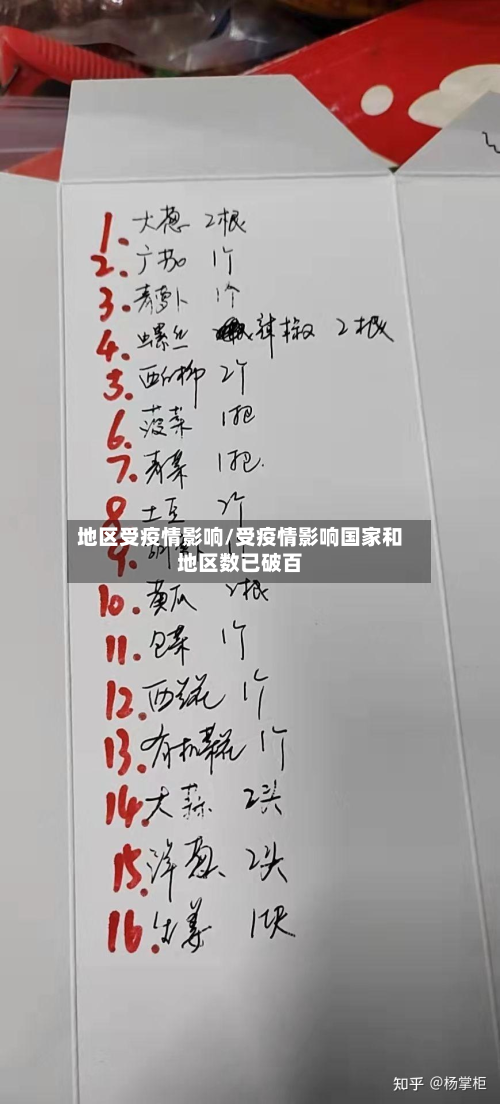 1. 大葱 2根
2. 广茄 1个
3. 青萝卜 1个
4. 螺丝 辣椒 2根
5. 西红柿 2个
6. 菠菜 1把
7. 青菜 1把.
8 土豆 2个
地区受疫情影响/受疫情影响国家和
地区数已破百
9.
10. 黄瓜 2根
11. 包菜 1个
12. 西兰花 1个
13. 有机菜花 1个
14. 大蒜. 2头
15. 洋葱. 2头
16. 生姜 1块
知乎 @杨掌柜